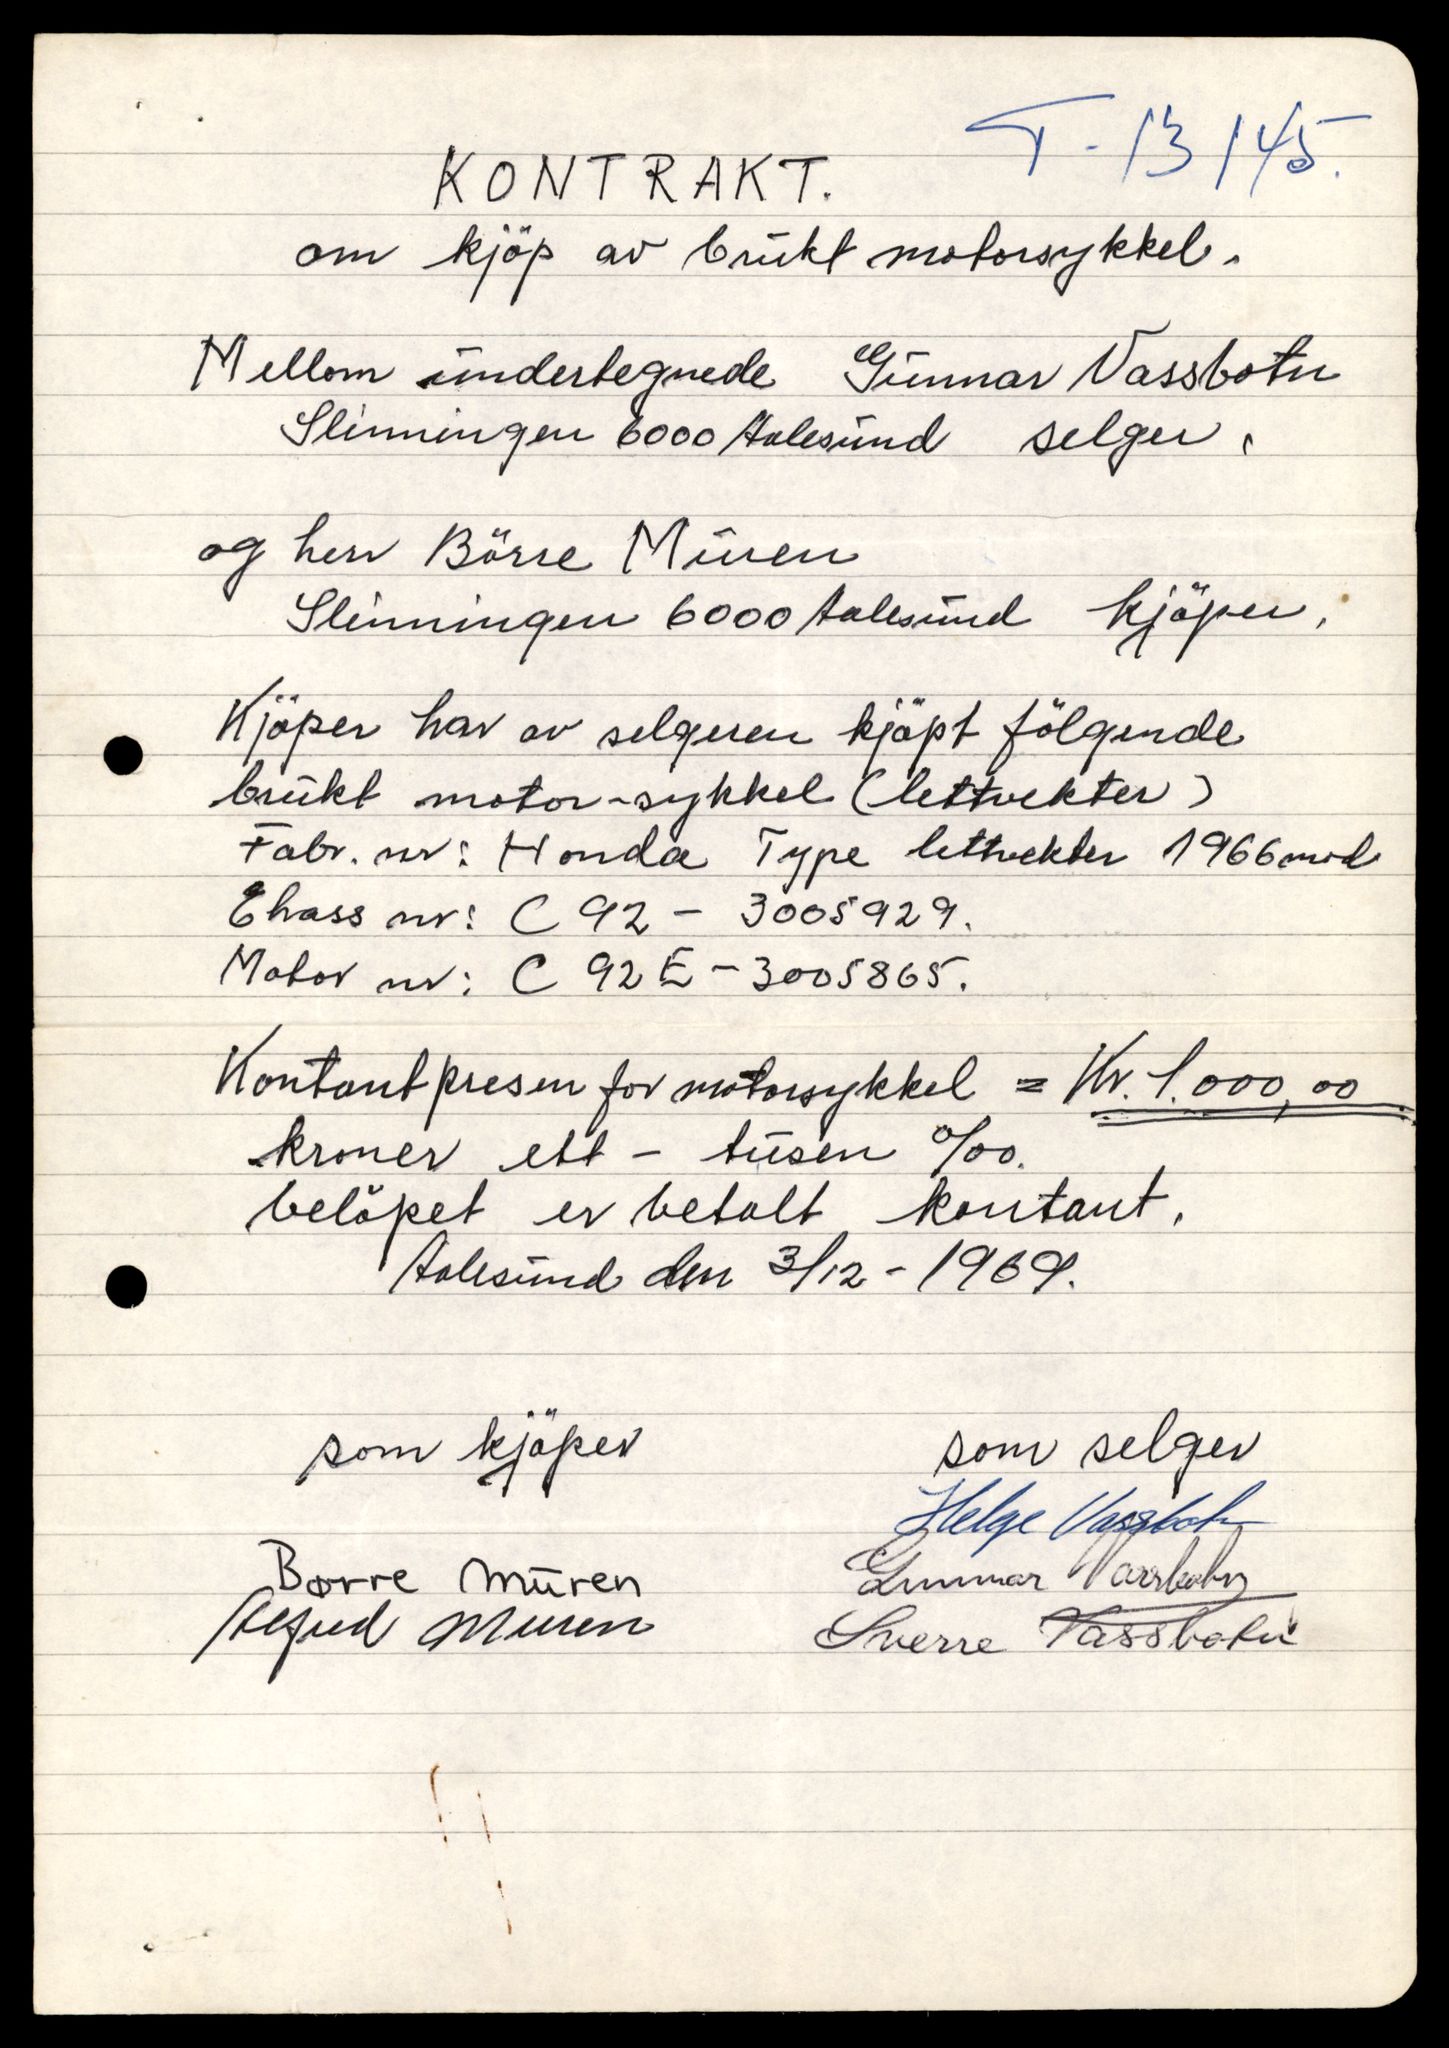 T-13145.
KONTRAKT.
om kjöp av brukt motorsykkel.
Mellom undertegnede Gunnar Vassbotn
Slinningen 6000 Aalesund selger.
og herr Börre Muren
Slinningen 6000 Aalesund kjöper.
Kjöper har av selgeren kjöpt fölgende
brukt motor-sykkel (lettvekter)
Fabr. nr: Honda Type lettvekter 1966 mod
Chass nr: C 92 - 3005929.
Motor nr: C 92 E - 3005865.
Kontantpresen for motorsykkel = Kr. 1.000,00
kroner ett - tusen o/oo.
belöpet er betalt kontant.
Aalesund den 3/12 - 1969.
som kjöper
som selger
Helge Vassbotn
Børre Muren
Gunnar Vassbotn
Alfred Muren
Sverre Vassbotn